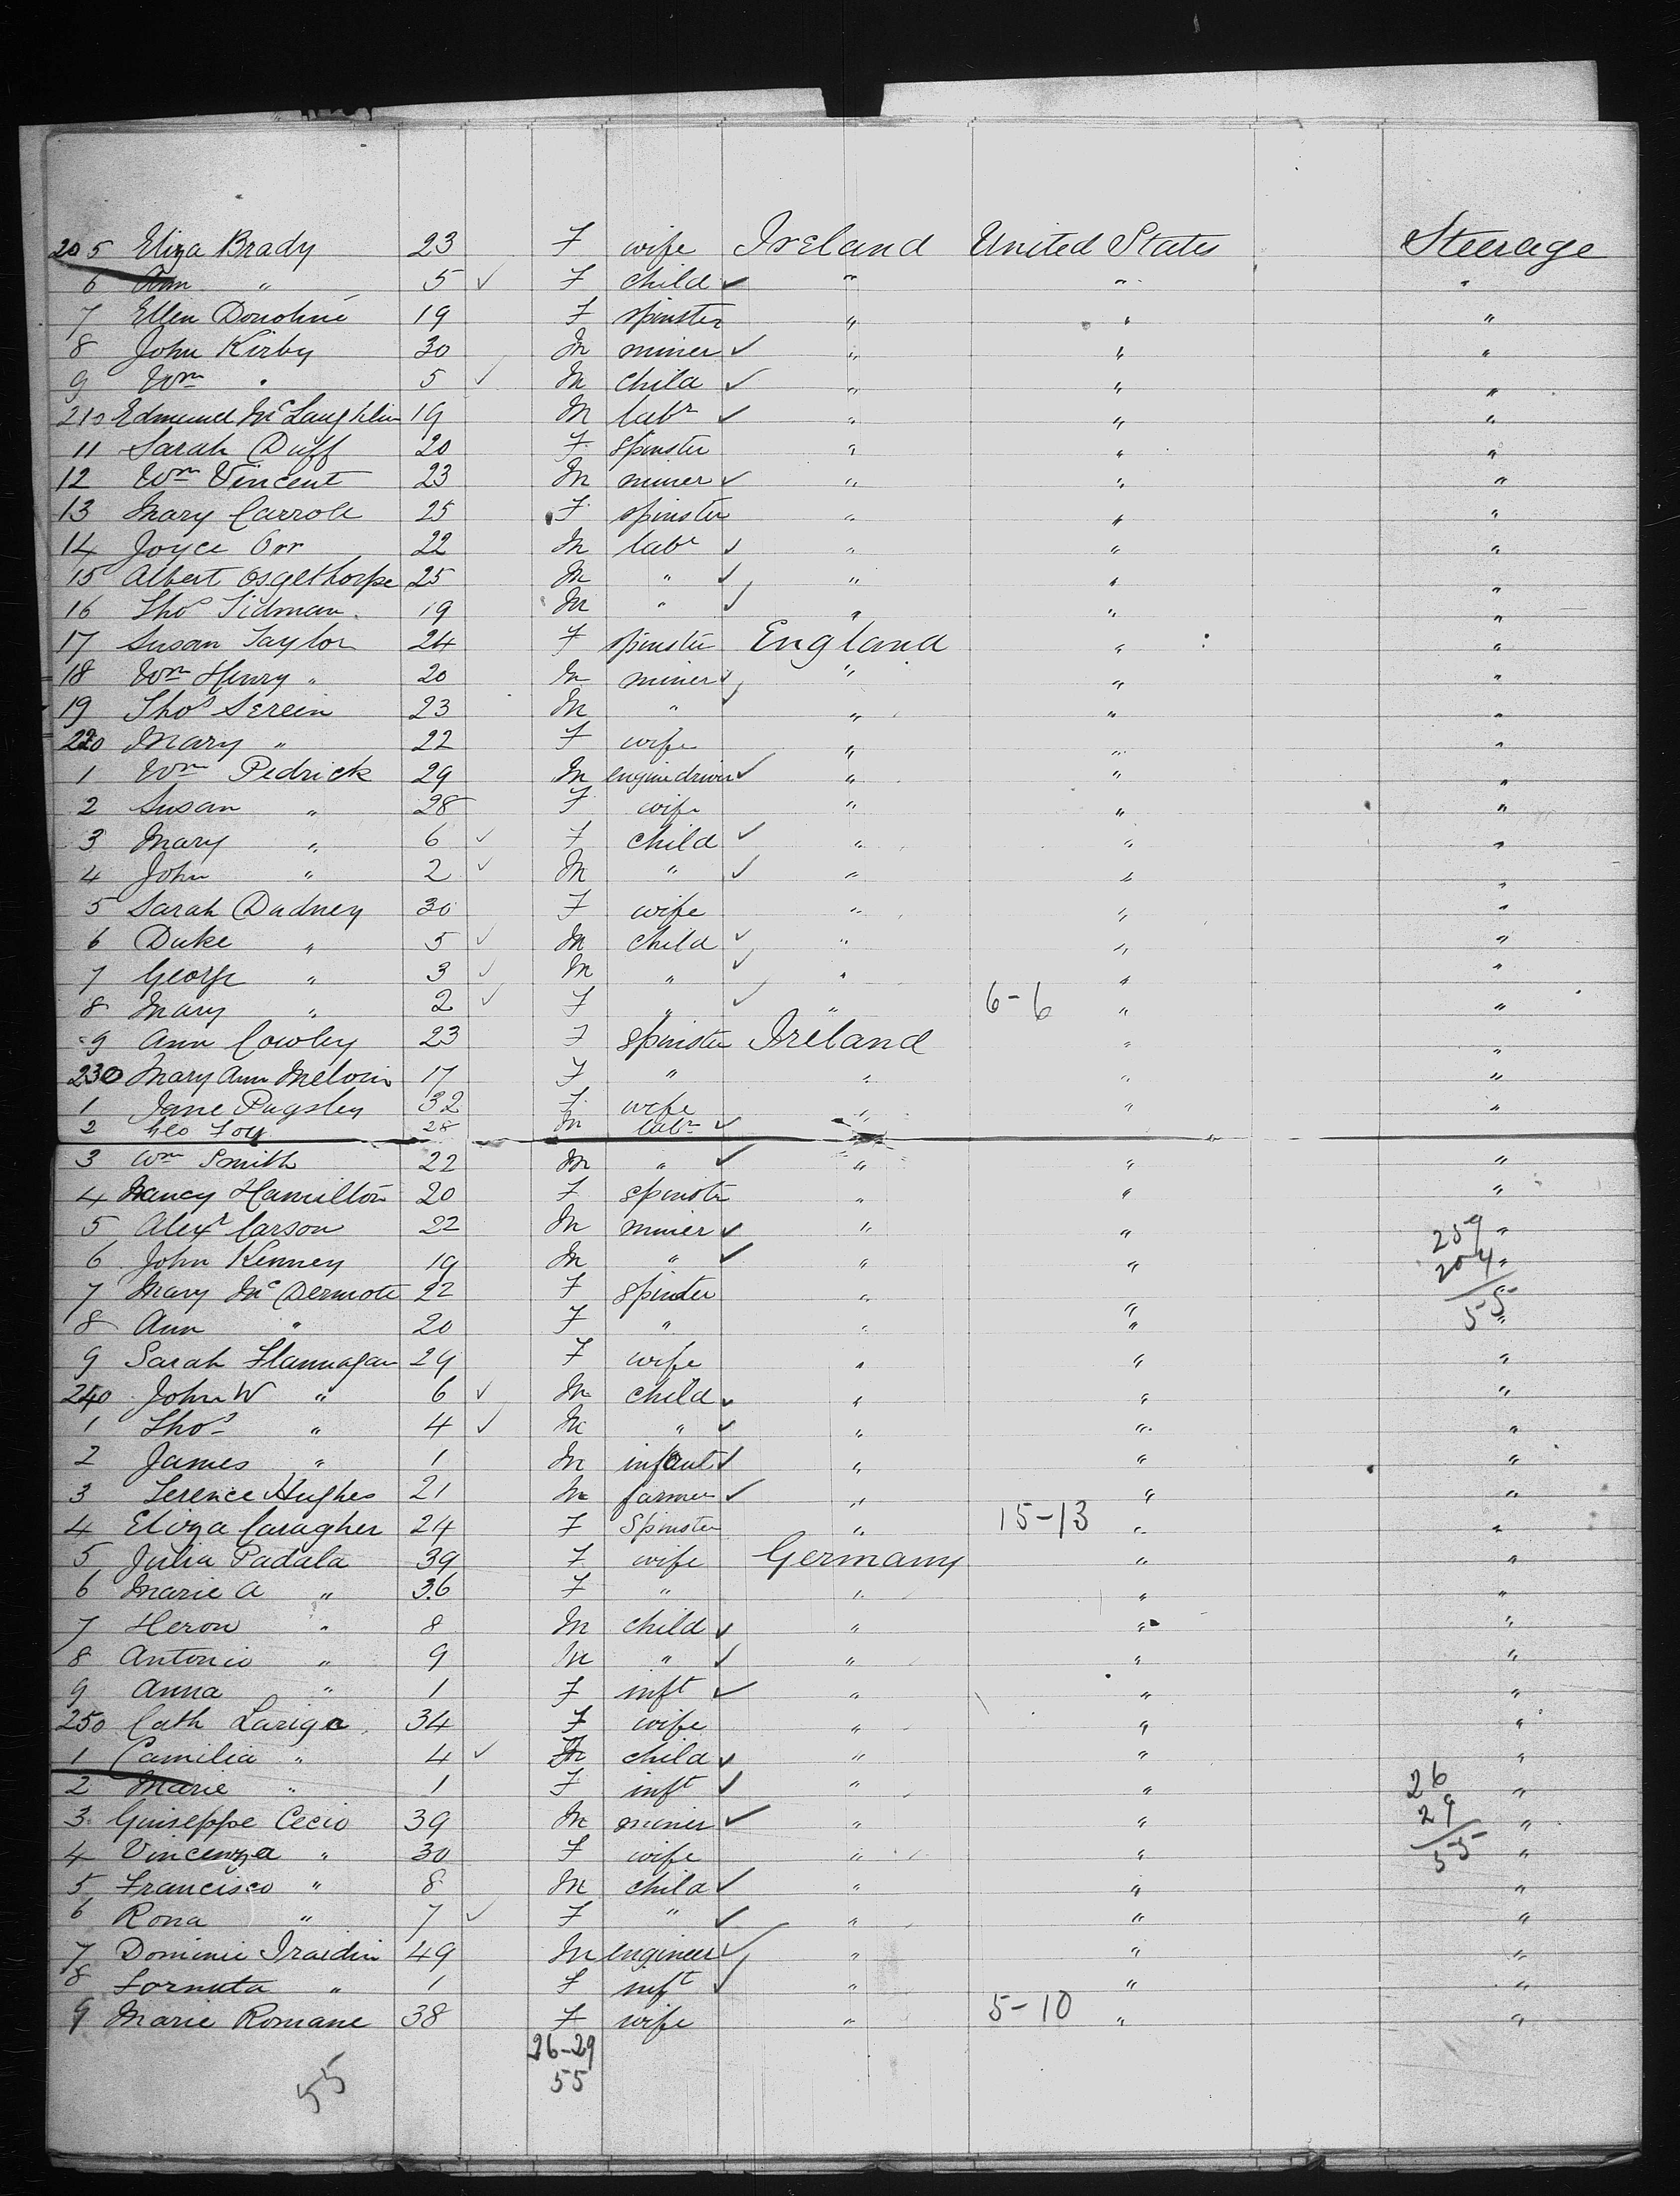 205 Eliza Brady 23 F wife Ireland United States Steerage
6 Ann " 5 ✓ F child ✓ " " "
7 Ellen Donohue 19 F spinster " " "
8 John Kirby 30 M miner ✓ " " "
9 Wm " 5 ✓ M child ✓ " " "
210 Edmund McLaughlin 19 M labr ✓ " " "
11 Sarah Duff 20 F spinster " " "
12 Wm Vincent 23 M miner ✓ " " "
13 Mary Carroll 25 F spinster " " "
14 Joyce Orr 22 M labr ✓ " " "
15 Albert Osgelthorpe 25 M " ✓ " " "
16 Thos Tidman 19 M " ✓ " " "
17 Susan Taylor 24 F spinster England " "
18 Wm Henry " 20 M miner ✓ " " "
19 Thos Serein 23 M " ✓ " " "
220 Mary " 22 F wife " " "
1 Wm Pedrick 29 M engine driver ✓ " " "
2 Susan " 28 F wife " " "
3 Mary " 6 ✓ F child ✓ " " "
4 John " 2 ✓ M " ✓ " " "
5 Sarah Dudney 30 F wife " " "
6 Duke " 5 ✓ M child ✓ " " "
7 George " 3 ✓ M " ✓ " " "
8 Mary " 2 ✓ F " ✓ " 6-6 " "
9 Ann Cowley 23 F Spinster Ireland " "
230 Mary Ann Melvin 17 F " " " "
1 Jane Pugsley 32 F wife " " "
2 Geo Foy 28 M labr ✓ "
3 Wm Smith 22 M " ✓ " " "
4 Nancy Hamilton 20 F spinster " " "
5 Alexr Carson 22 M miner ✓ " " 259 "
6 John Kenney 19 M " ✓ " " 204 "
7 Mary McDermott 22 F spinster " " 55 "
8 Ann " 20 F " " " "
9 Sarah Flannagan 29 F wife " " "
240 John W " 6 ✓ M child ✓ " " "
1 Thos " 4 ✓ M " ✓ " " "
2 James " 1 M infant ✓ " " "
3 Terence Hughes 21 M farmer ✓ " " "
4 Eliza Caragher 24 F Spinster " 15-13 " "
5 Julia Padala 39 F wife Germany " "
6 Marie A " 36 F " " " "
7 Heron " 8 M child ✓ " " "
8 Antonio " 9 M " ✓ " " "
9 Anna " 1 F inft ✓ " " "
250 Cath Lariga 34 F wife " " "
1 Camilia " 4 ✓ F child ✓ " " "
2 Marie " 1 F inft ✓ " " 26 "
3 Guiseppe Cecio 39 M miner ✓ " " 29 "
4 Vincenza " 30 F wife " " 55 "
5 Francisco " 8 M child ✓ " " "
6 Rona " 7 ✓ F " ✓ " " "
7 Dominic Iraidin 49 M engineer ✓ " " "
8 Fornuta " 1 F inft ✓ " " "
9 Marie Romane 38 F wife " 5-10 " "
26-29
55 55